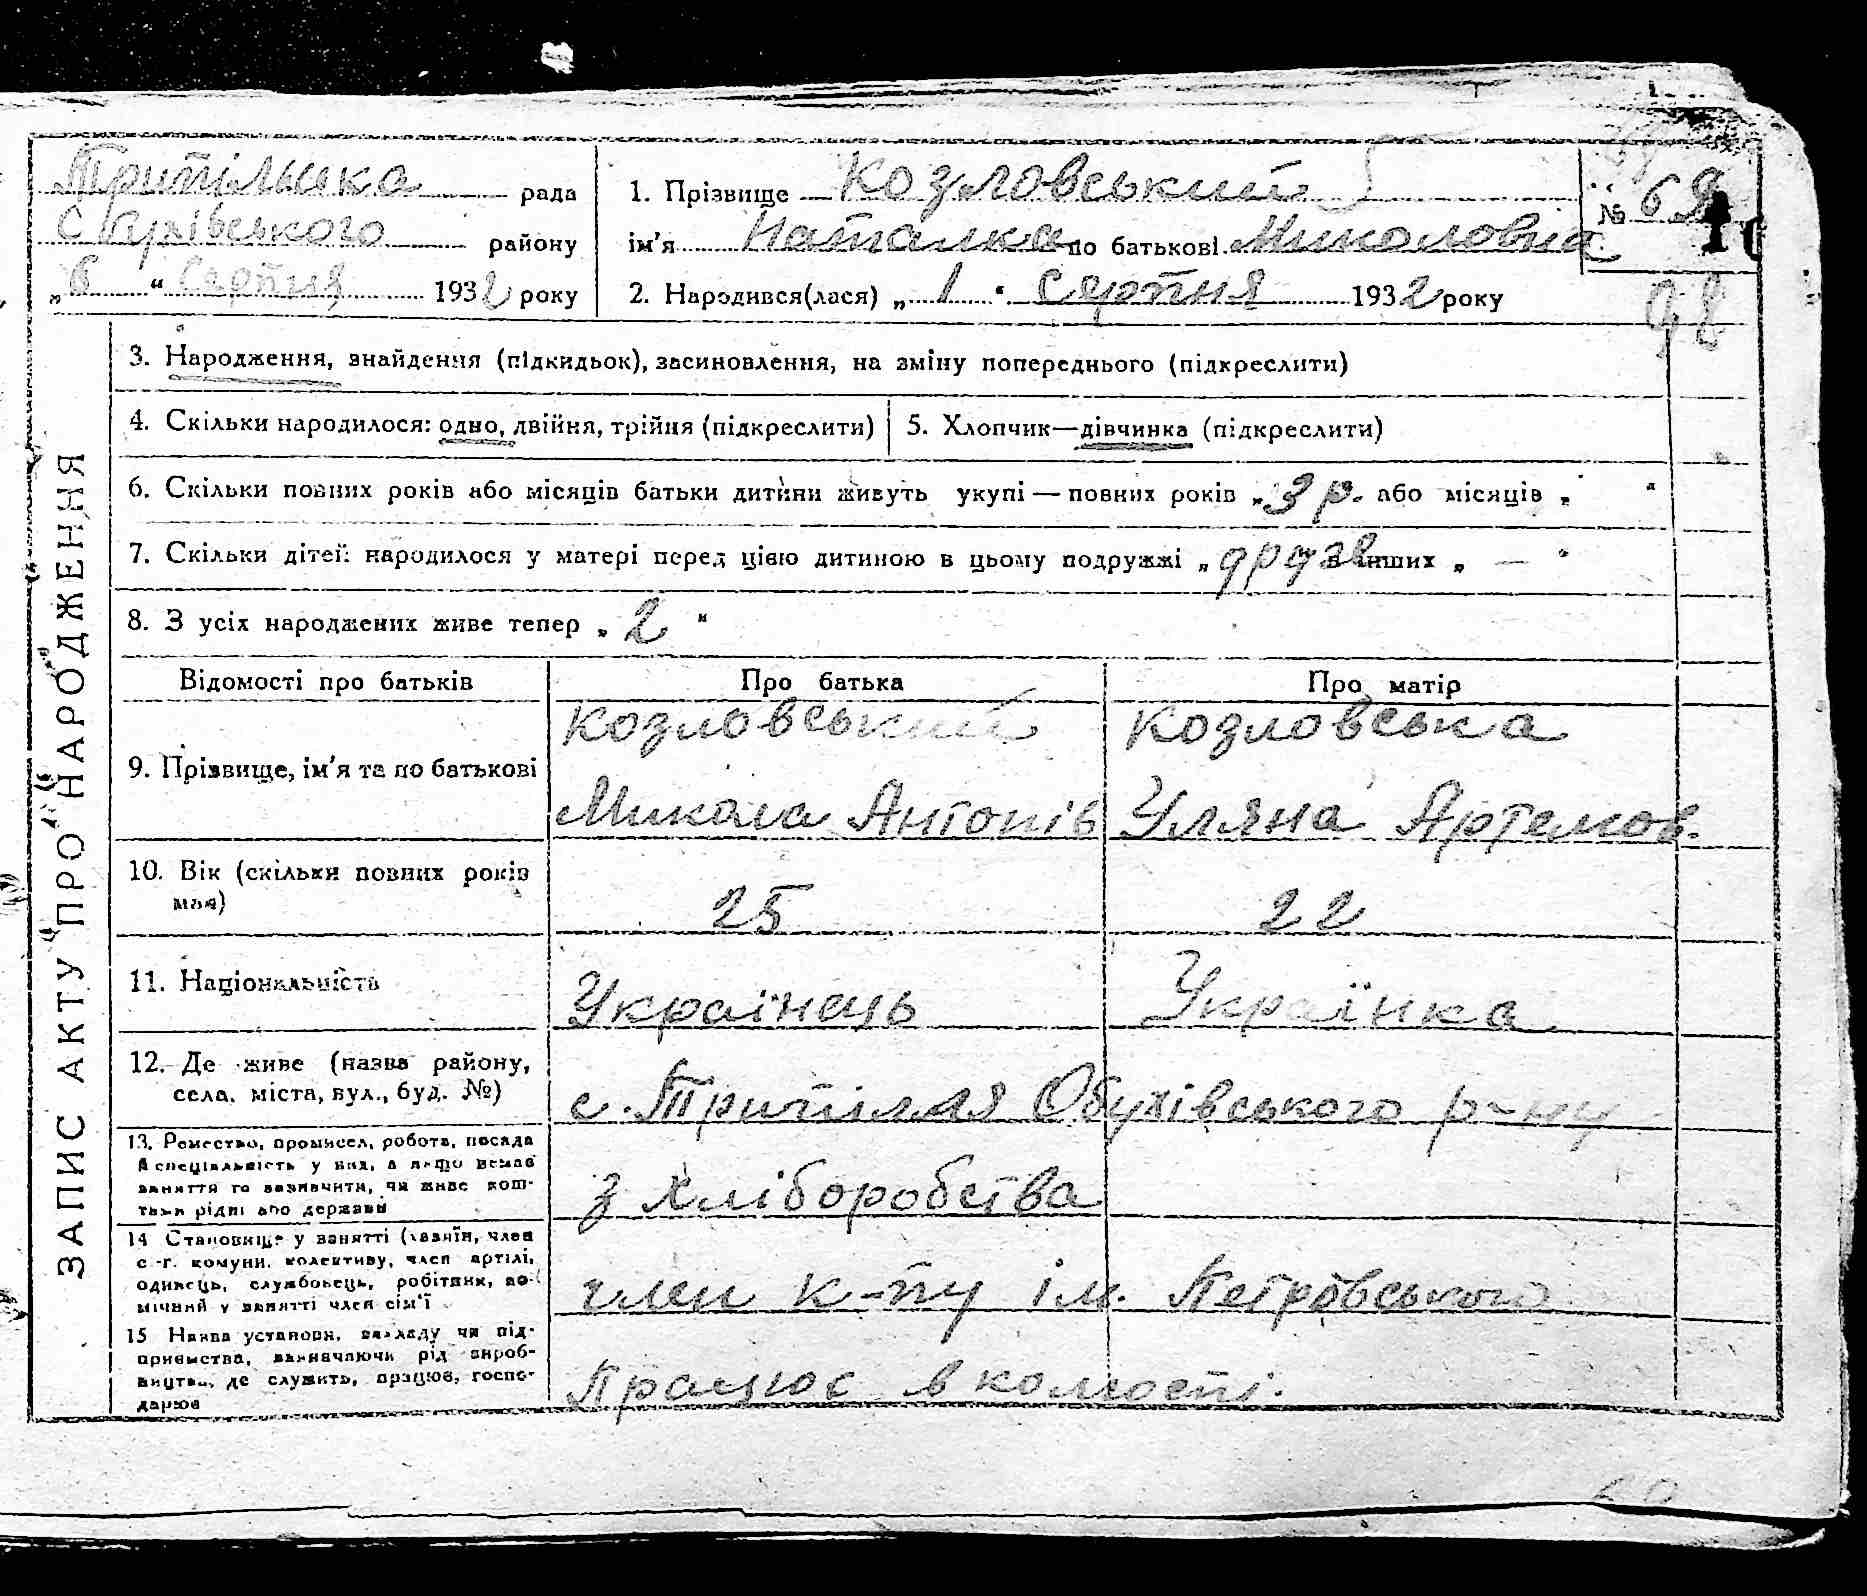 Трипільська рада
Обухівського району
„6“ Серпня 1932 року
1. Прізвище Козловський
ім'я Наталка по батькові Миколовна
2. Народився(лася) „1“ Серпня 1932 року
№ 69
98
ЗАПИС АКТУ ПРО НАРОДЖЕННЯ
3. Народження, знайдення (підкидьок), засиновлення, на зміну попереднього (підкреслити)
4. Скільки народилося: одно, двійня, трійня (підкреслити)
5. Хлопчик—дівчинка (підкреслити)
6. Скільки повних років або місяців батьки дитини живуть укупі — повних років „3 р. або місяців „ “
7. Скільки дітей народилося у матері перед цією дитиною в цьому подружжі „друге в інших „ — “
8. З усіх народжених живе тепер „2“
Відомості про батьків Про батька Про матір
9. Прізвище, ім'я та по батькові
Козловський Козловська
Микола Антонів Уляна Артемов.
10. Вік (скільки повних років
має)
25 22
11. Національність
Українець Українка
12. Де живе (назва району,
села, міста, вул., буд. №)
с. Трипілля Обухівського р-ну
13. Ремество, промисел, робота, посада
й спеціяльність у них, а якщо немає
заняття то зазначити, чи живе кош-
тами рідні або держави
з хліборобства
14 Становище у занятті (хазяїн, член
с.-г. комуни, колективу, член артілі,
одинець, службовець, робітник, по-
мічний у занятті член сім'ї
член к-пу ім. Петровського
15 Назва установи, закладу чи під-
приємства, зазначаючи рід вироб-
ництва, де служить, працює, госпо-
дарює
Працює в колгоспі.